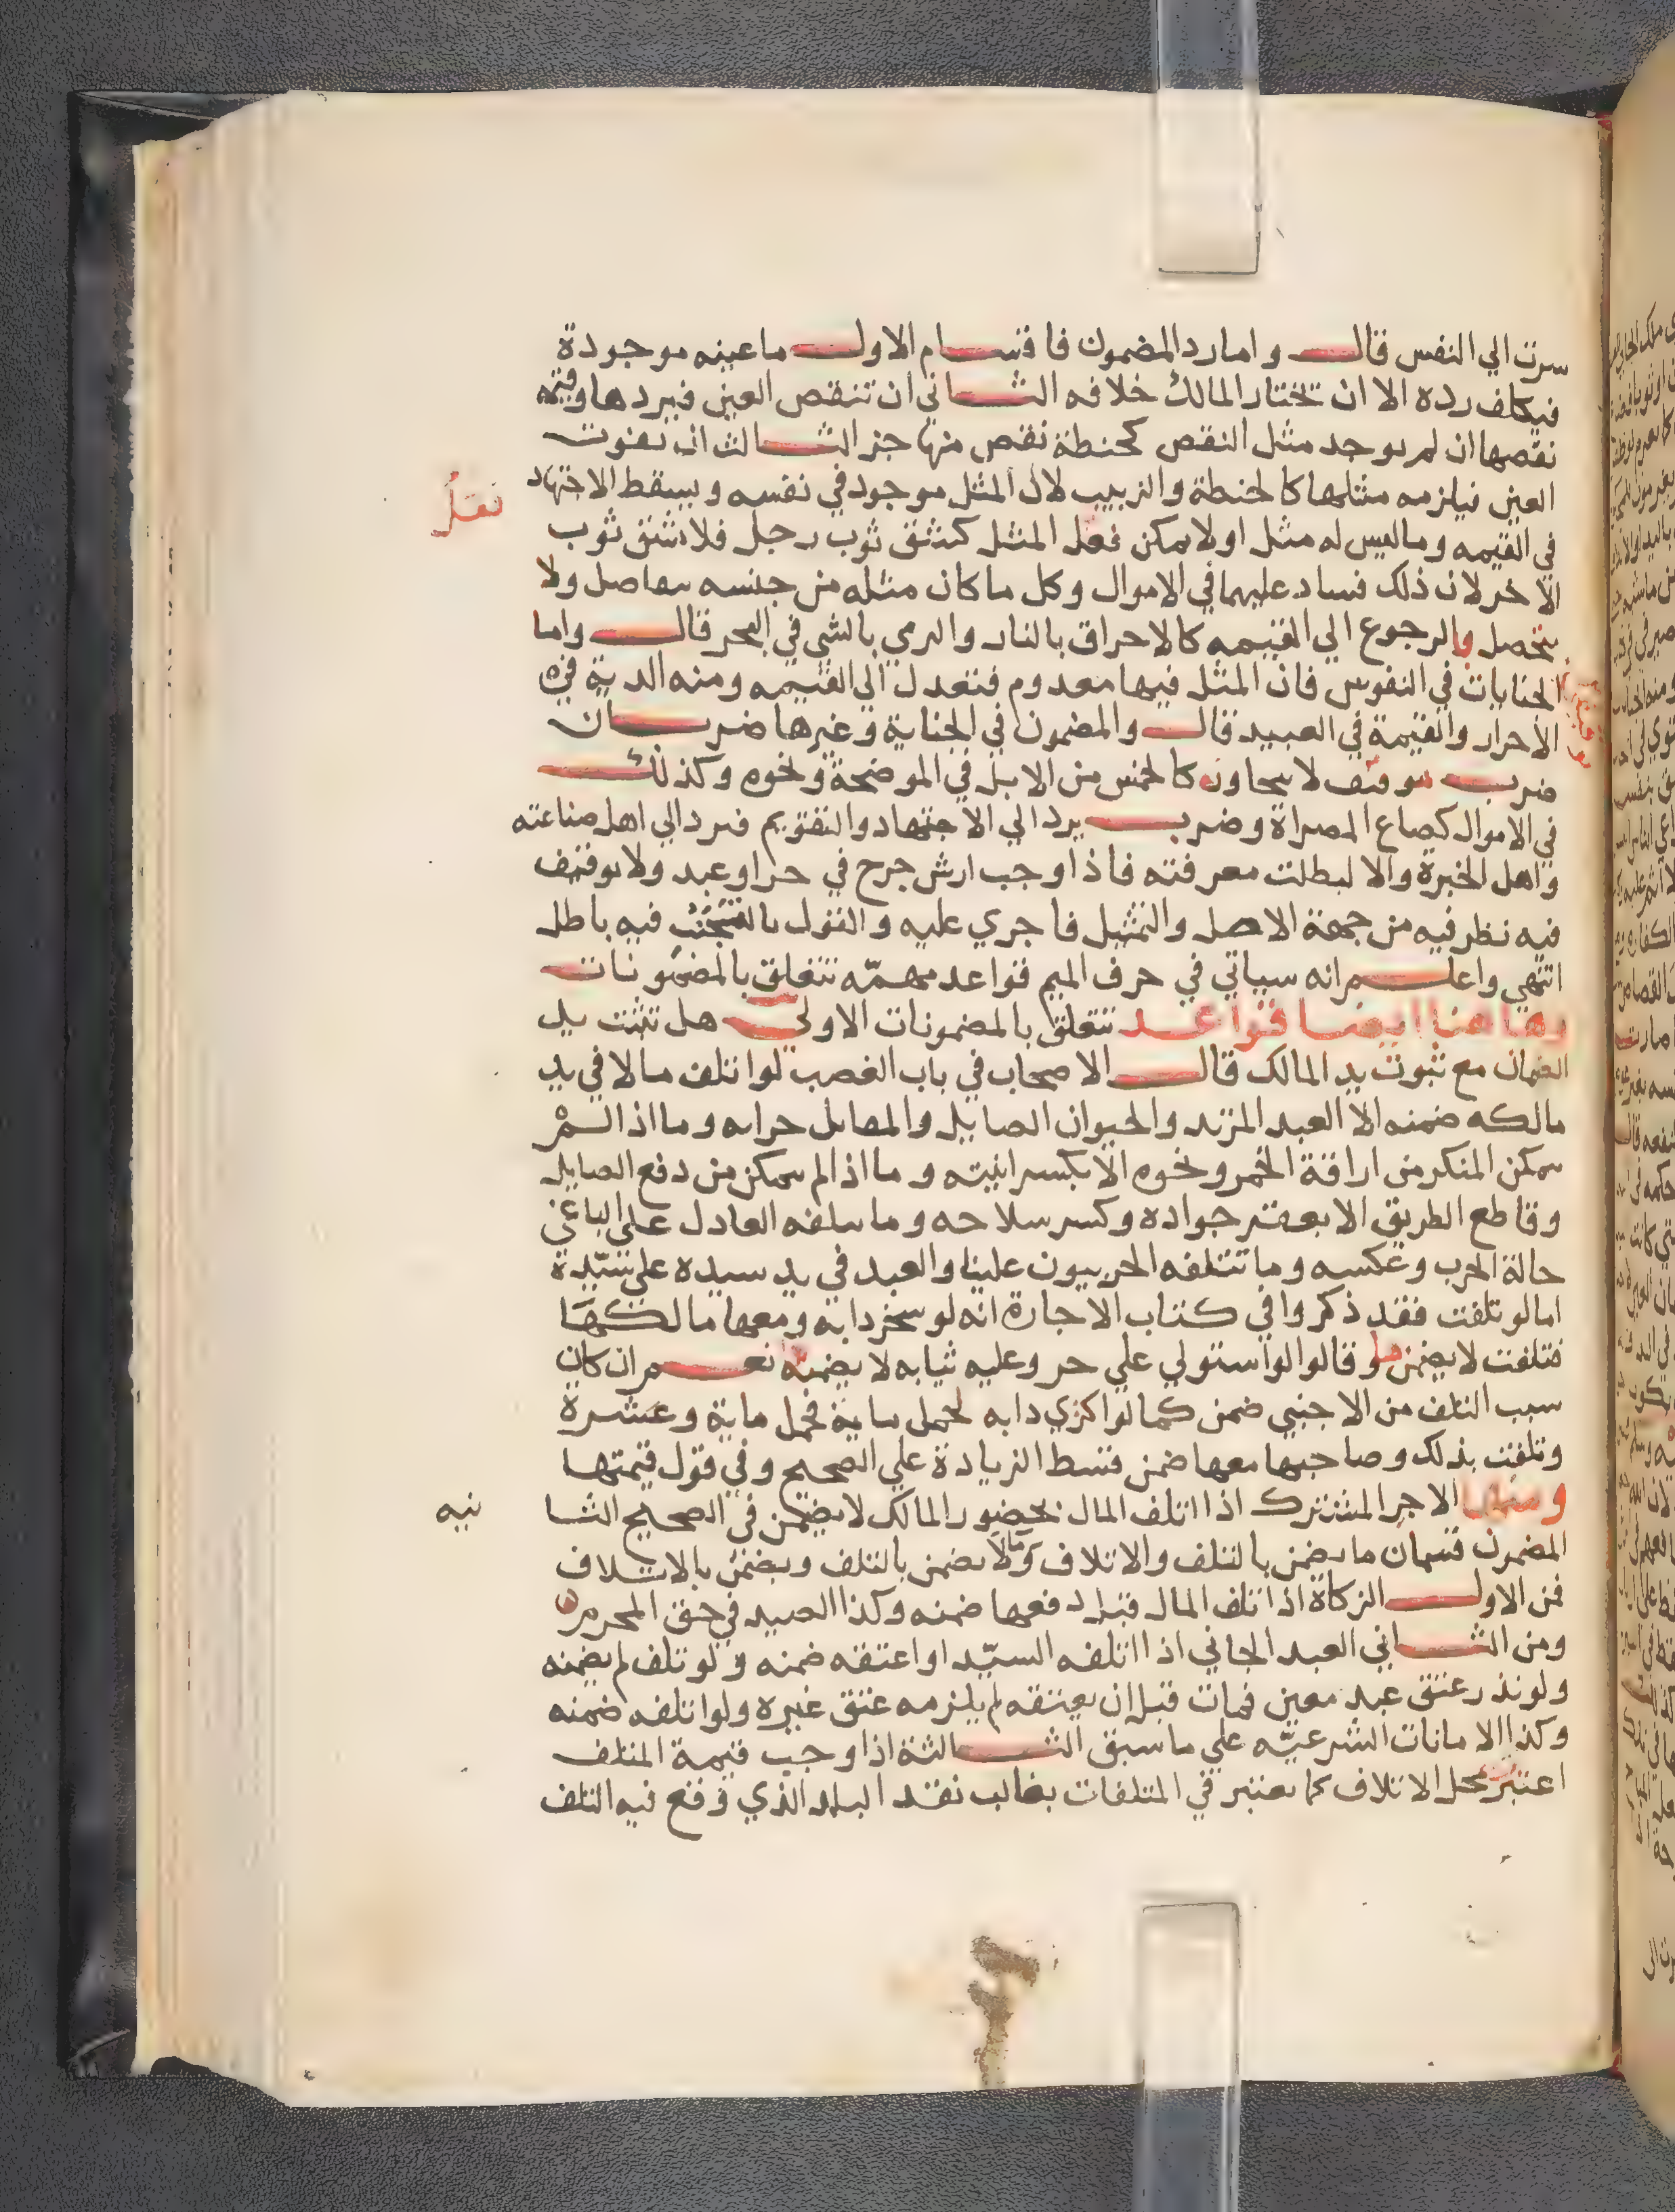 سرت الي النفس قال واما رد المضمون فاقسام الاول ما عينه موجودة
فيكلف رده الا ان تختار المالك خلافه الثاني ان تنقص العين فيردها وقيمة
نقصها ان لم يوجد مثل النقص كحنطة نقص منها جز الثالث ان يفوت
العين فيلزمه مثلها كالحنطة والزبيب لان المثل موجود في نفسه ويسقط الاجتهاد
في القيمه وما ليس له مثل او لا يمكن فعل المثل كشق ثوب رجل فلا نشق ثوب
الاخر لان ذلك فساد عليهما في الاموال وكل ما كان مثله من جنسه ولا
يتحصل والرجوع الي القيمه كالاحراق بالنار والرمي بالشي في البحر قال واما
الجنايات في النفوس فان المثل فيها معدوم فنعدل الي القيمه ومنه الدية في
الاحرار والقيمة في العبيد قال والمضمون في الجناية وغيرها ضربان
ضرب موقف لا يجاوز كالخمس من الابل في الموضحة ونحوه وكذلك
في الاموال كصاع المصراة وضرب يرد الي الاجتهاد والتقويم فيرد الي اهل صناعته
واهل الخبرة والا لبطلت معرفته فاذا وجب ارش جرح في حر او عبد ولا توقيف
فيه نظر فيه من جهة الاصل والتمثيل فاجري عليه والقول بال فيه باطل
انتهي واعلم انه سياتي في حرف الميم قواعد مهمّه تتعلق بالمضمونات
وها هنا ايضا قواعد تتعلق بالمضمونات الاولي هل تثبت يد
الضمان مع ثبوت يد المالك قال الاصحاب في باب الغصب لو اتلف مالا في يد
مالكه ضمنه الا العبد المرتد والحيوان الصايل والمقاتل حرابه وما اذا لم
يتمكن المنكر من اراقة الخمر ونحوه الا بكسر انيته وما اذا لم يتمكن من دفع الصايل
وقاطع الطريق الا بعقر جواده وكسر سلاحه وما يتلفه العادل علي الباغي
حالة الحرب وعكسه وما تتلفه الحربيون علينا والعبد في يد سيده علي سيّدة
اما لو تلفت فقد ذكروا في كتاب الاجارة انه لو سخر دابه ومعها مالكها
فتلفت لا يضمنها وقالوا لو استولي علي حر وعليه ثيابه لا يضمنه نعم ان كان
سبب التلف من الاجنبي ضمن كما لو اكتري دابه لحمل ماية فحمل ماية وعشرة
وتلفت بذلك وصاحبها معها ضمن قسط الزيادة علي الصحيح وفي قول قيمتها
ومنها الاجر المشترك اذا اتلف المال بحضور المالك لا يضمن في الصحيح الثا
نيه
المضمون قسمان ما يضمن بالتلف والاتلاف وما لا يضمن بالتلف ويضمن بالاتلاف
فمن الاول الزكاة اذا تلف المال قبل دفعها ضمنه وكذا الصيد في حق المحرم
ومن الثاني العبد الجاني اذا اتلفه السيّد او اعتقه ضمنه ولو تلف لم يضمنه
ولو نذر عتق عبد معين فمات قبل ان يعتقه لم يلزمه عتق غيره ولو اتلفه ضمنه
وكذا الامانات الشرعيّه علي ما سبق الثالثة اذا وجب قيمة المتلف
اعتبر محل الاتلاف كما يعتبر في المتلفات بغالب نقد البلد الذي وقع فيه التلف